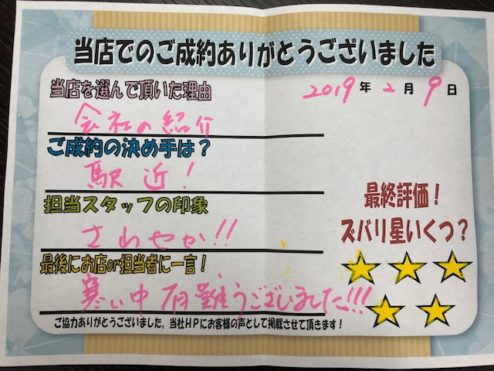 当店でのご成約ありがとうございました
当店を選んで頂いた理由
2019年2月9日
会社の紹介
ご成約の決め手は？
駅近！
担当スタッフの印象
さわやか!!
最後にお店or担当者に一言！
寒い中有難うございました!!!
最終評価！
ズバリ星いくつ？
ご協力ありがとうございました。当社HPにお客様の声として掲載させて頂きます！